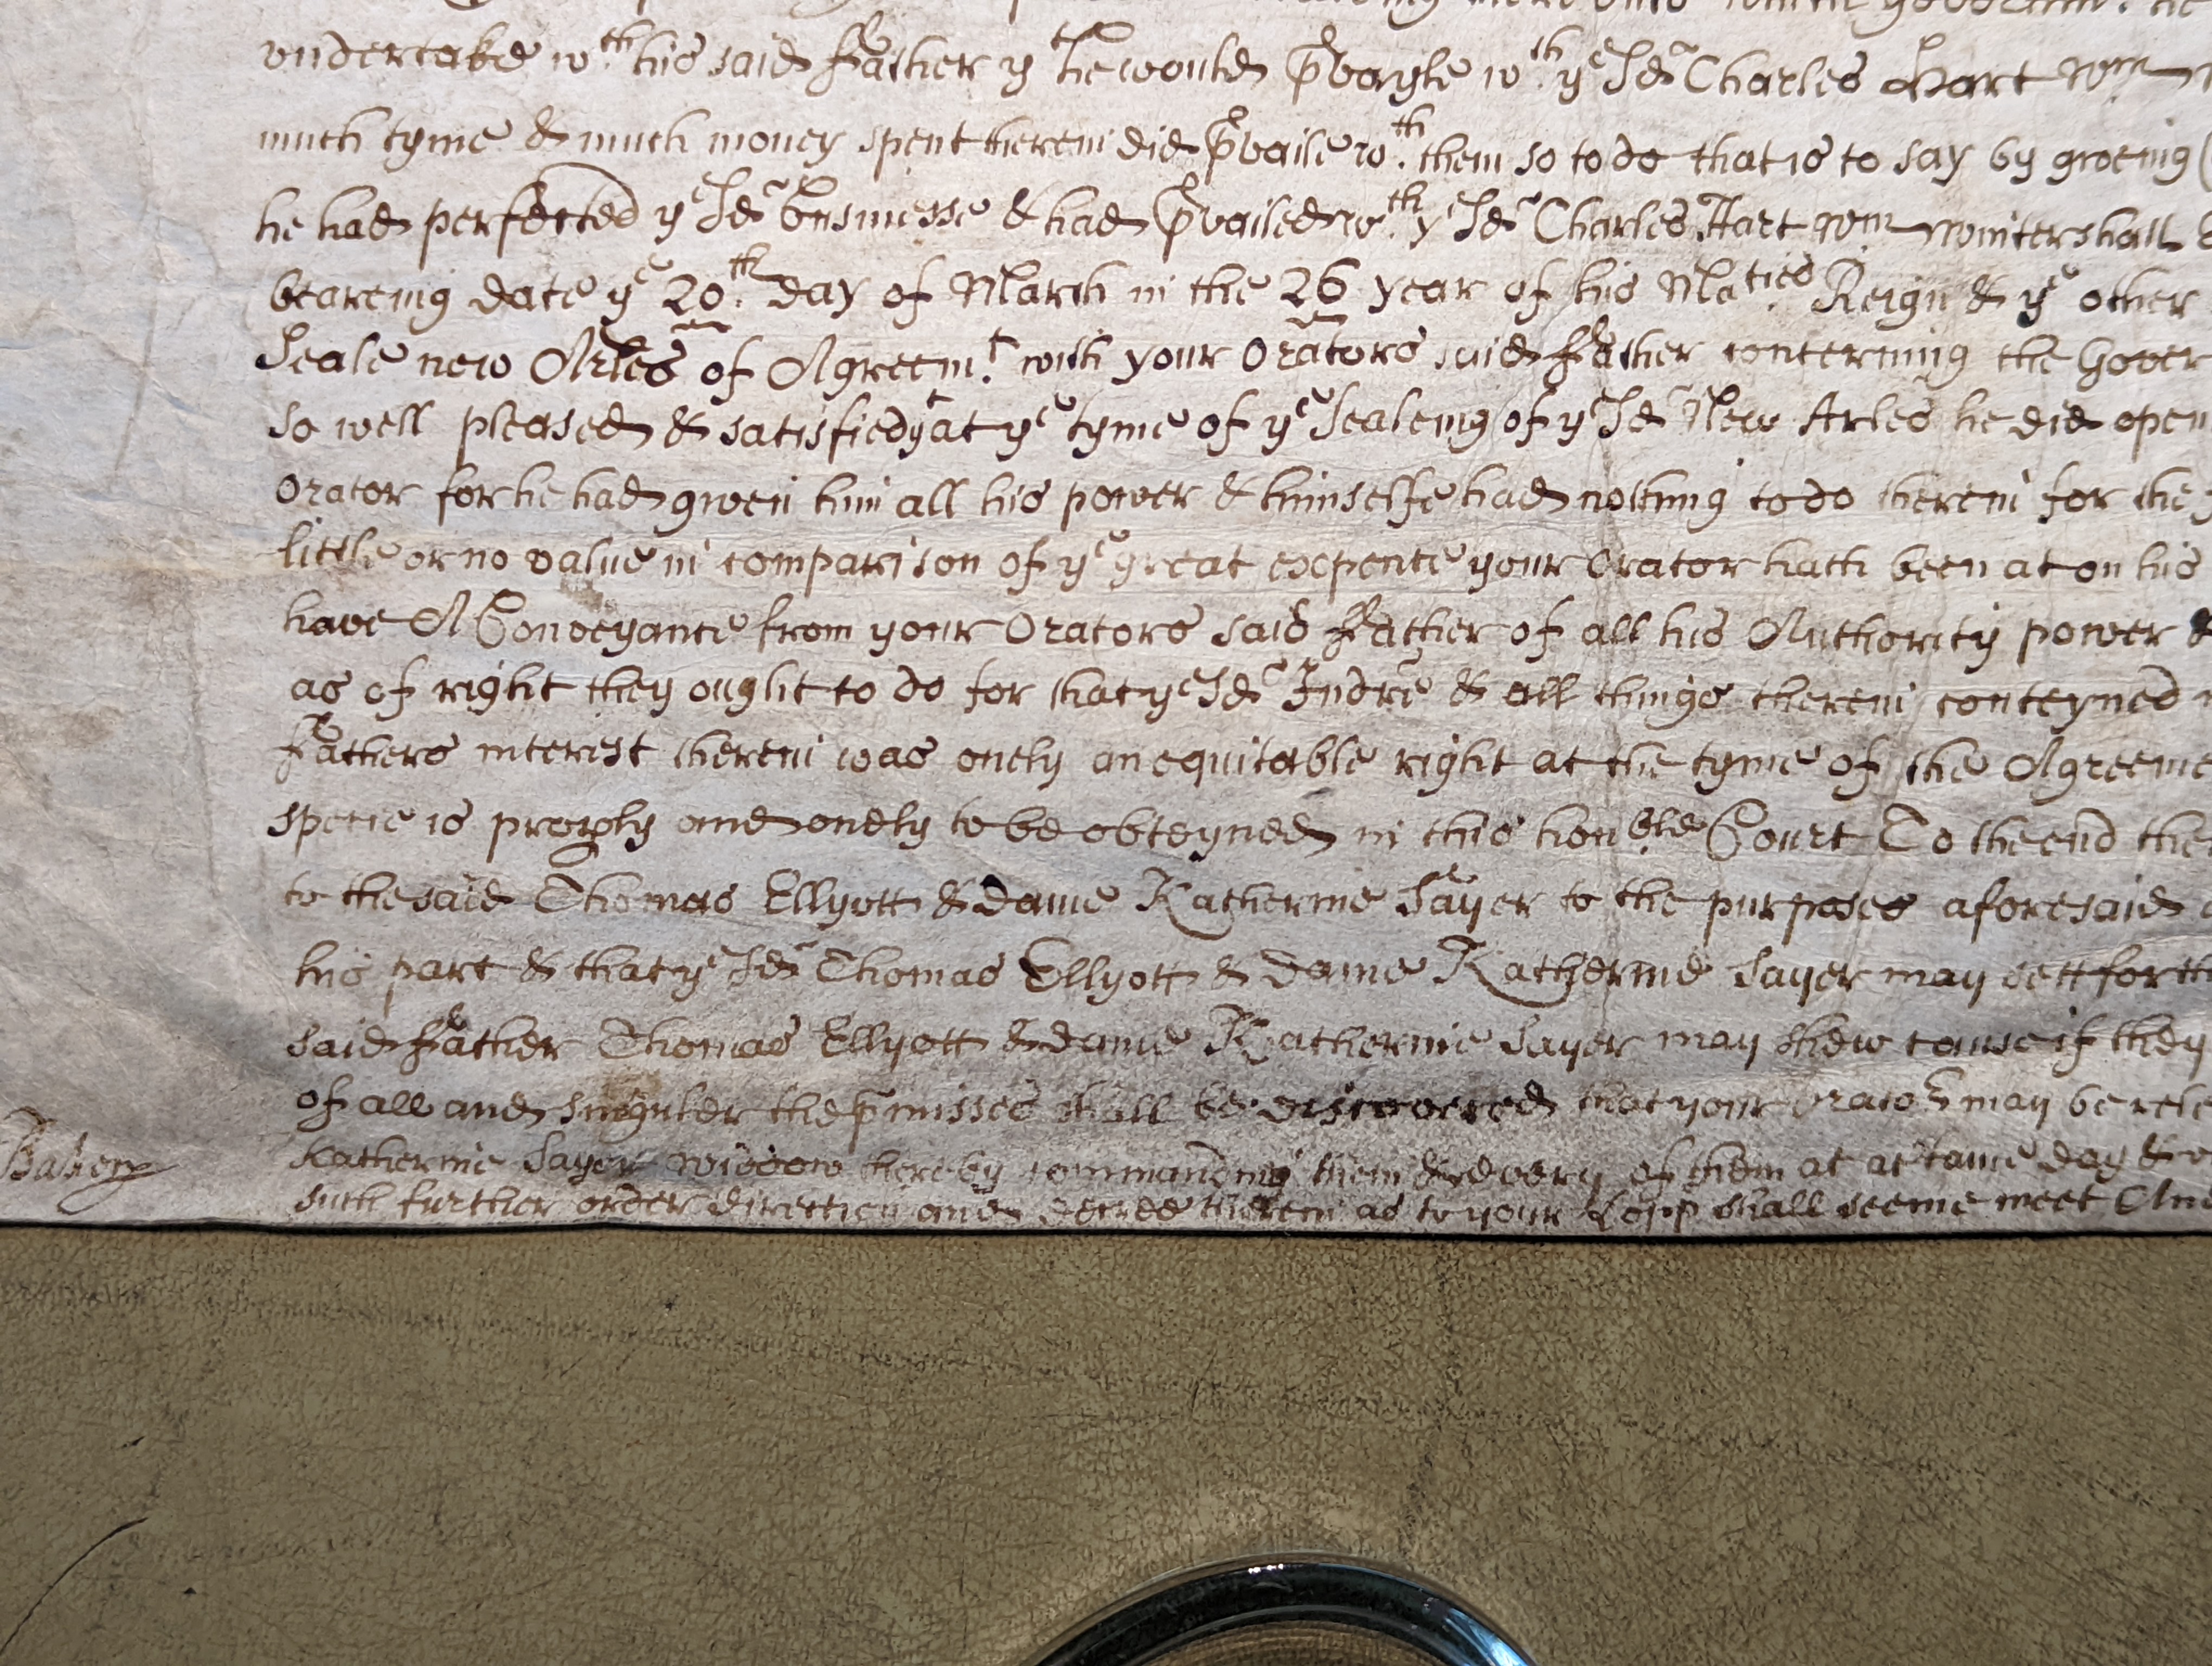 undertake wth his said Father yt he would pvayle wth ye sd Charles Hart Wm
much tyme & much money spent therein did pvaile wth them so to do that is to say by giveing
he had perfected ye sd businesse & had pvailed wth ye sd Charles Hart Wm Wintershall
beareing date ye 20th day of March in the 26 year of his Maties Reign & ye other
Seale new Arles of Agreemt with your Orators said Father concerning the Gover
so well pleased & satisfied yt at ye tyme of ye Sealeing of ye sd New Arles he did open
Orator for he had given him all his power & himselfe had nothing to do therein for the
little or no value in comparison of ye great expence your Orator hath been at on his
have A Conveyance from your Orators said Father of all his Authority power &
as of right they ought to do for that ye sd Indre & all things therein conteyned
Fathers interest therein was onely an equitable right at the tyme of the Agreeme
specie is proply and onely to be obteyned in this honble Court To the end the
to the said Thomas Ellyott & dame Katherine Sayer to the purposes aforesaid
his part & that ye sd Thomas Ellyott & dame Katherine Sayer may sett forth
said Father Thomas Ellyott & dame Katherine Sayer may shew cause if they
of all and singuler the pmisses shall be discovered that your Orator may be rele
Katherine Sayer widdow hereby commanding them & every of them at a certaine day &
such further order direction and decree therein as to your Lopp shall seeme meet And